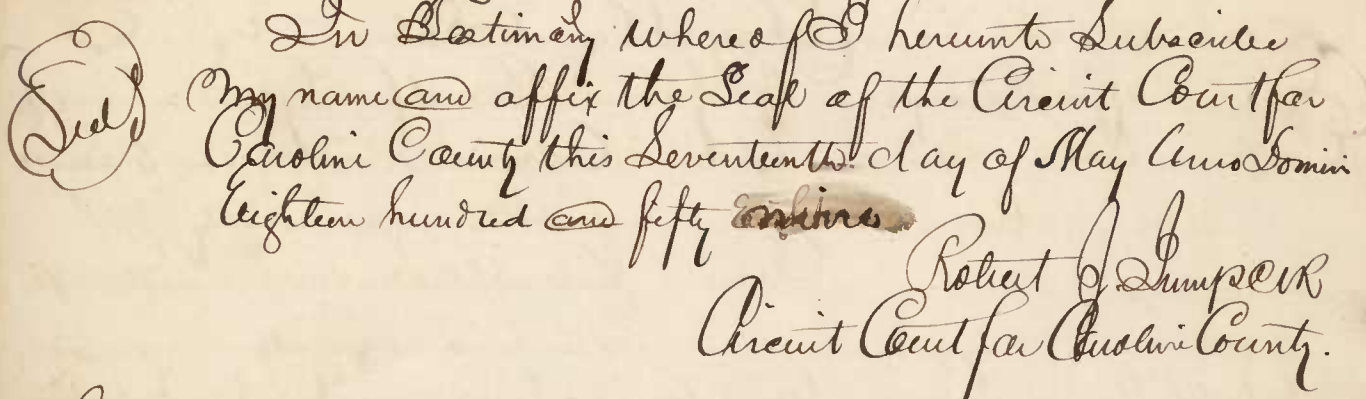 Seal
In Testimony whereof I hereunto Subscribe
My name and affix the Seal of the Circuit Court for
Caroline County this Seventeenth day of May Anno Domini
Eighteen hundred and fifty nine
Robert J Jump Clk
Circuit Court for Caroline County.